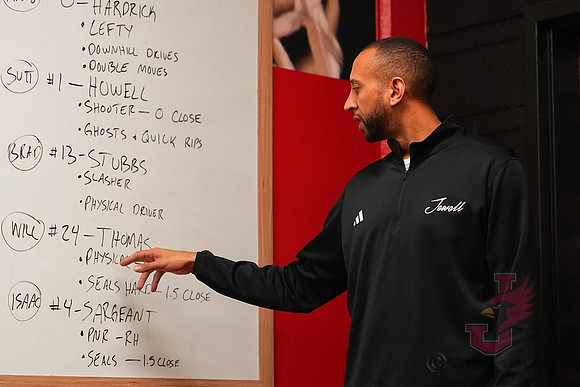 0 - HARDRICK
• LEFTY
• DOWNHILL DRIVES
• DOUBLE MOVES
SUTT #1 - HOWELL
• SHOOTER - 0 CLOSE
• GHOSTS + QUICK RIPS
BRAD #13 - STUBBS
• SLASHER
• PHYSICAL DRIVER
WILL #24 - THOMAS
• PHYSICAL
• SEALS HARD - 1.5 CLOSE
ISAAC #4 - SARGEANT
• PNR - RH
• SEALS - 1.5 CLOSE
Jewell
J